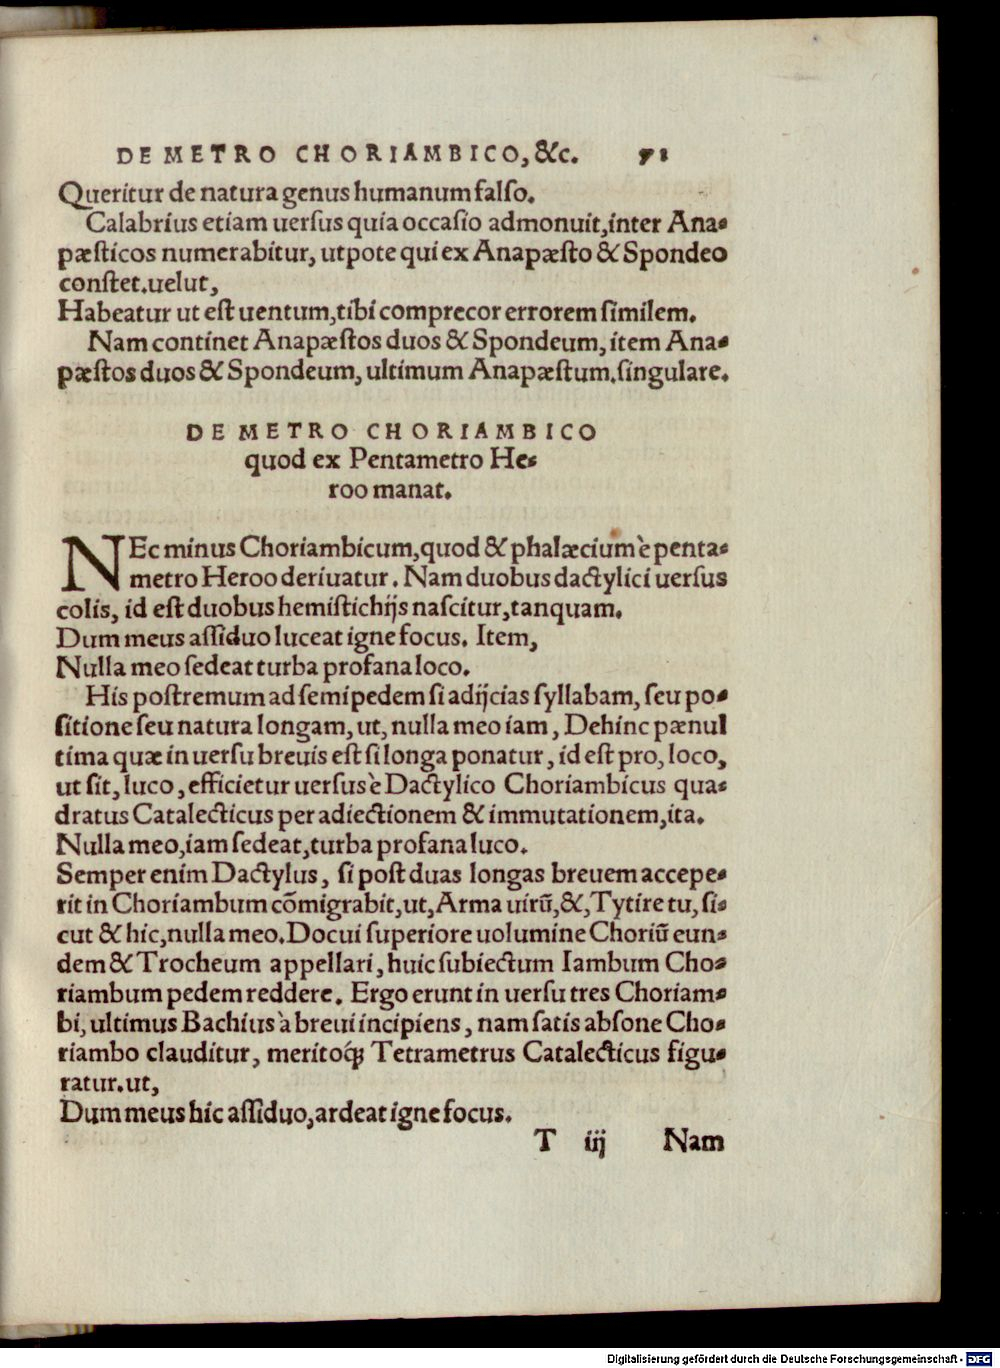 DE METRO CHORIAMBICO, &c. 71
Queritur de natura genus humanum falso.
Calabrius etiam uersus quia occasio admonuit, inter Ana-
pæsticos numerabitur, utpote qui ex Anapæsto & Spondeo
constet. uelut,
Habeatur ut est uentum, tibi comprecor errorem similem.
Nam continet Anapæstos duos & Spondeum, item Ana-
pæstos duos & Spondeum, ultimum Anapæstum. singulare.
DE METRO CHORIAMBICO
quod ex Pentametro He-
roo manat.
NEc minus Choriambicum, quod & phalæcium è penta-
metro Heroo deriuatur. Nam duobus dactylici uersus
colis, id est duobus hemistichijs nascitur, tanquam.
Dum meus assiduo luceat igne focus. Item,
Nulla meo sedeat turba profana loco.
His postremum ad semipedem si adijcias syllabam, seu po-
sitione seu natura longam, ut, nulla meo iam, Dehinc pænul
tima quæ in uersu breuis est si longa ponatur, id est pro, loco,
ut sit, luco, efficietur uersus è Dactylico Choriambicus qua-
dratus Catalecticus per adiectionem & immutationem, ita.
Nulla meo, iam sedeat, turba profana luco.
Semper enim Dactylus, si post duas longas breuem accepe-
rit in Choriambum cōmigrabit, ut, Arma uirū, &, Tytire tu, si-
cut & hic, nulla meo. Docui superiore uolumine Choriū eun-
dem & Trocheum appellari, huic subiectum Iambum Cho-
riambum pedem reddere. Ergo erunt in uersu tres Choriam-
bi, ultimus Bachius à breui incipiens, nam satis absone Cho-
riambo clauditur, meritoq́; Tetrametrus Catalecticus figu-
ratur. ut,
Dum meus hic assiduo, ardeat igne focus.
T iij Nam
Digitalisierung gefördert durch die Deutsche Forschungsgemeinschaft - DFG